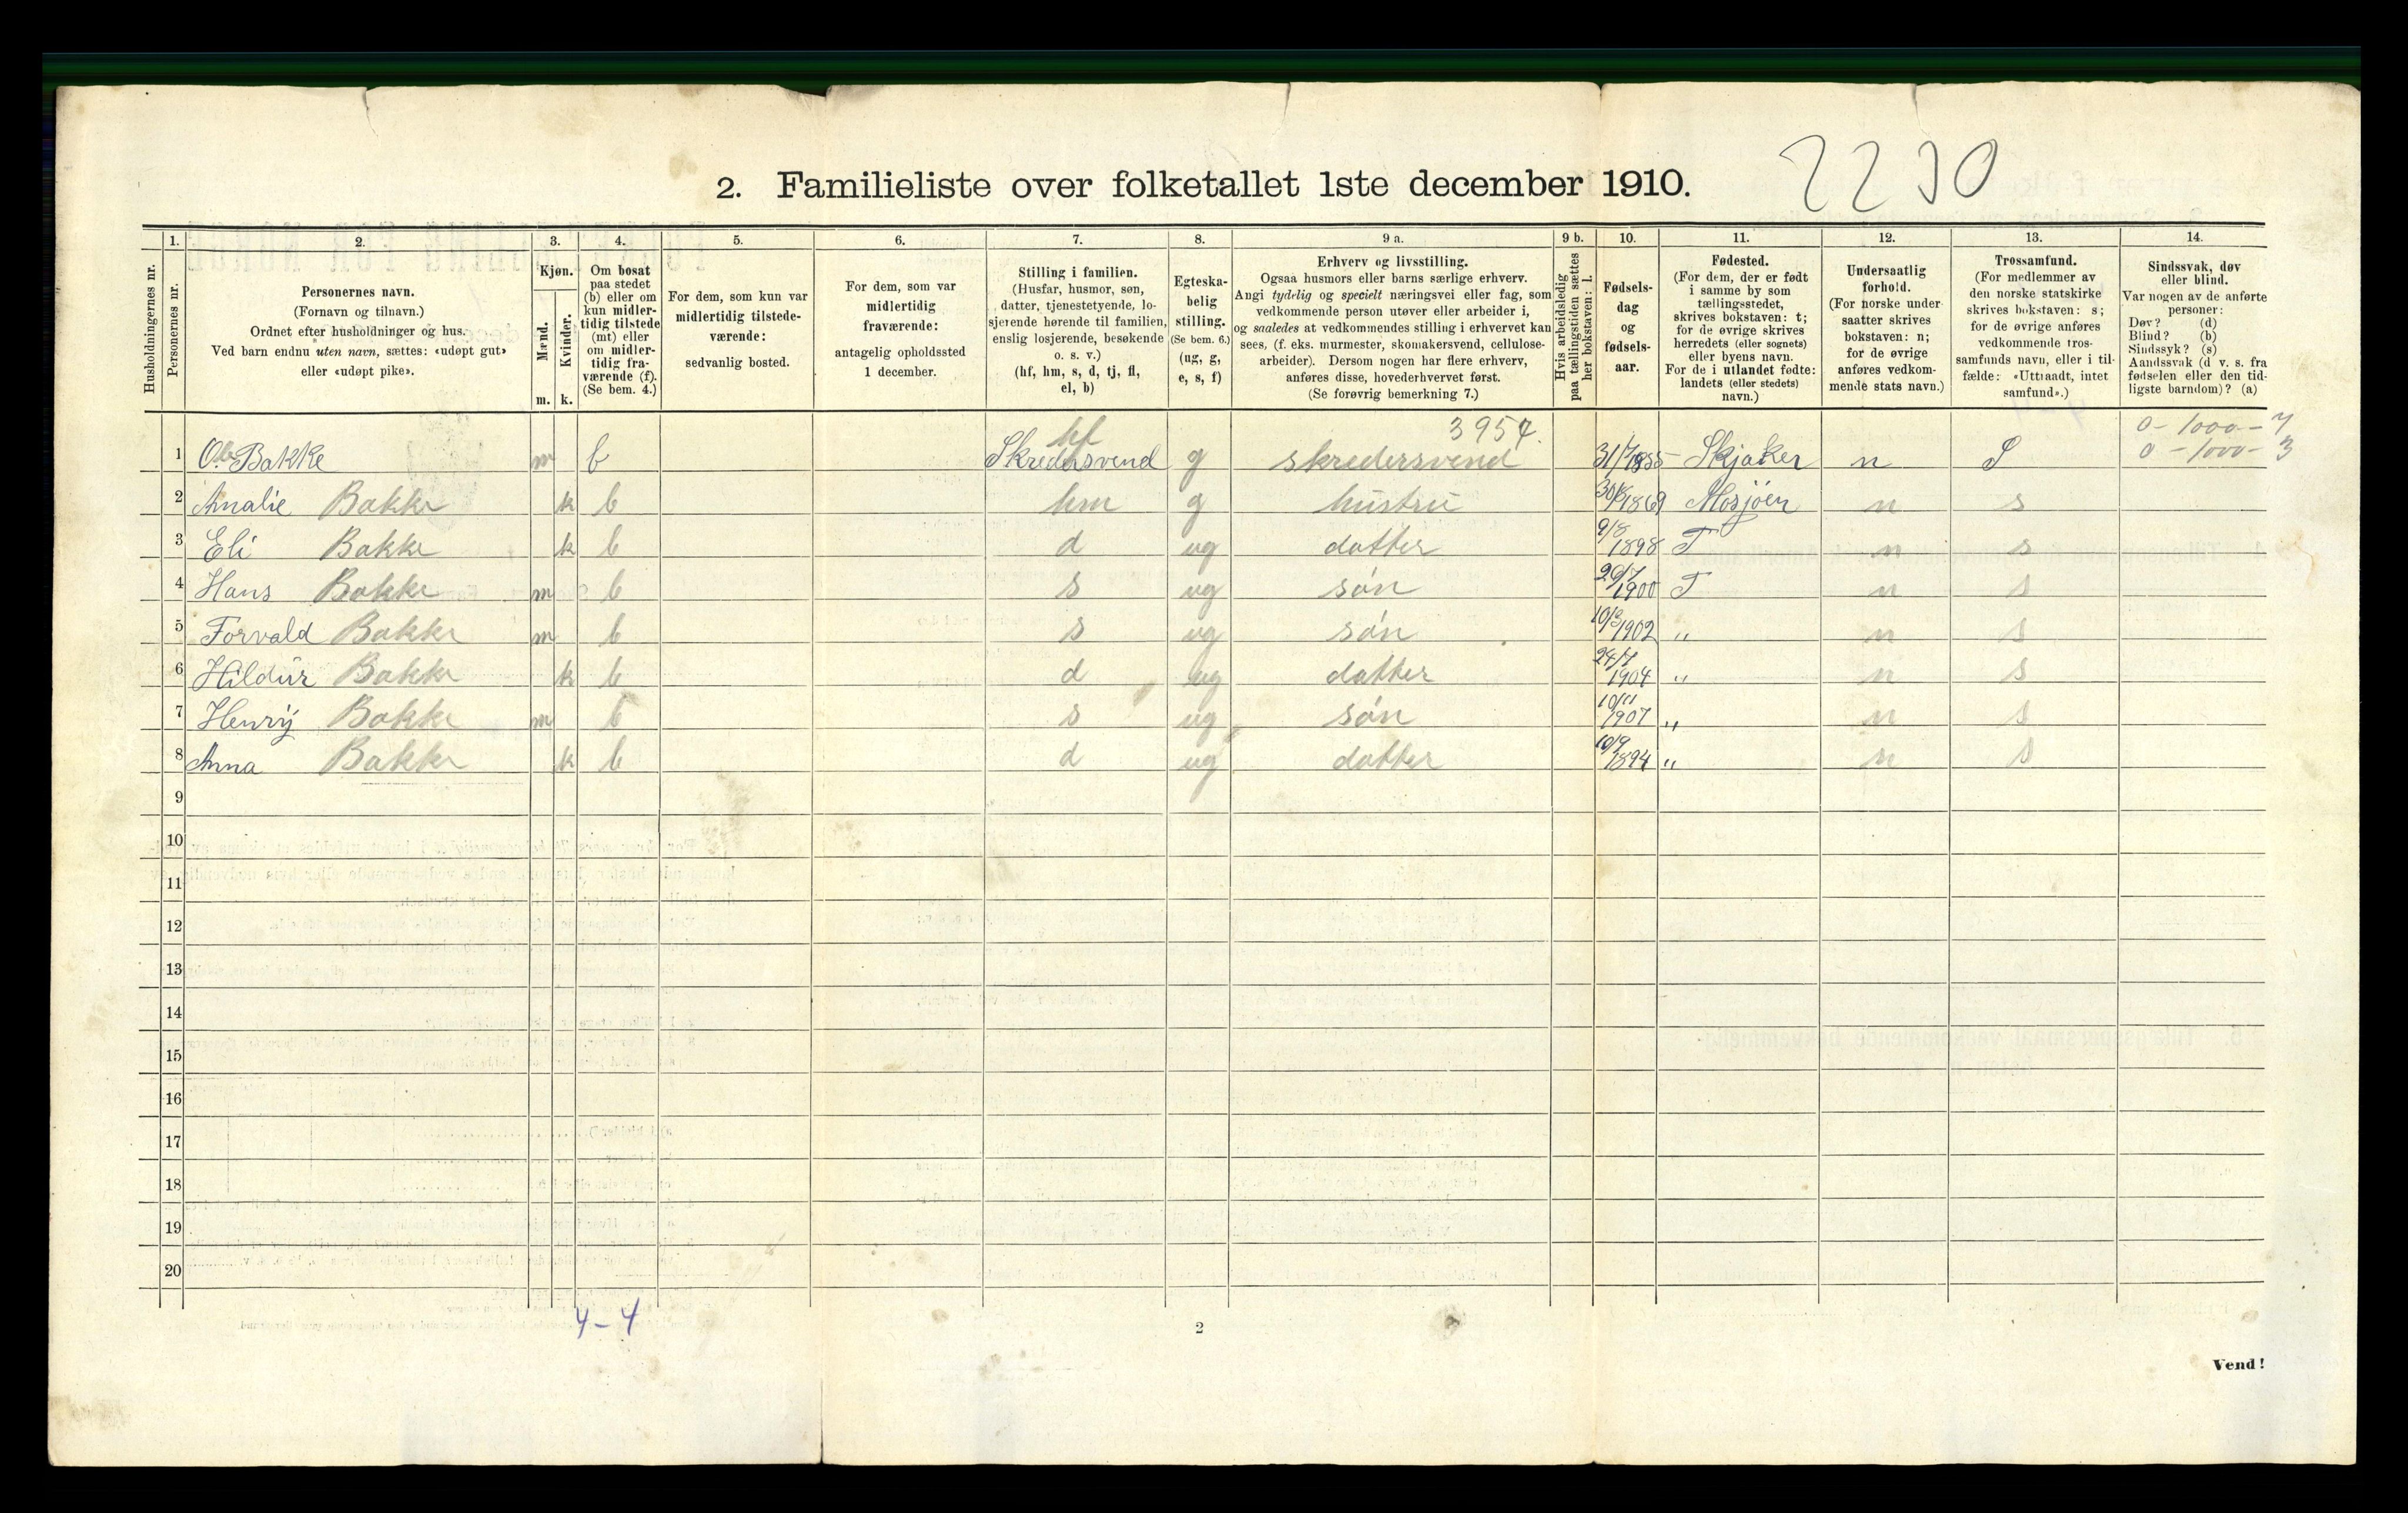 2230
2. Familieliste over folketallet 1ste december 1910.
Husholdningernes nr.
1. Personernes nr.
2. Personernes navn.
(Fornavn og tilnavn.)
Ordnet efter husholdninger og hus.
Ved barn endnu uten navn, sættes: «udøpt gut»
eller «udøpt pike».
3. Kjøn.
Mænd. m.
Kvinder. k.
4. Om bosat
paa stedet
(b) eller om
kun midler-
tidig tilstede
(mt) eller
om midler-
tidig fra-
værende (f).
(Se bem. 4.)
5. For dem, som kun var
midlertidig tilstede-
værende:
sedvanlig bosted.
6. For dem, som var
midlertidig
fraværende:
antagelig opholdssted
1 december.
7. Stilling i familien.
(Husfar, husmor, søn,
datter, tjenestetyende, lo-
sjerende hørende til familien,
enslig losjerende, besøkende
o. s. v.)
(hf, hm, s, d, tj, fl,
el, b)
8. Egteska-
belig
stilling.
(Se bem. 6.)
(ug, g,
e, s, f)
9 a. Erhverv og livsstilling.
Ogsaa husmors eller barns særlige erhverv.
Angi tydelig og specielt næringsvei eller fag, som
vedkommende person utøver eller arbeider i,
og saaledes at vedkommendes stilling i erhvervet kan
sees, (f. eks. murmester, skomakersvend, cellulose-
arbeider). Dersom nogen har flere erhverv,
anføres disse, hovederhvervet først.
(Se forøvrig bemerkning 7.)
9 b. Hvis arbeidsledig
paa tællingstiden sættes
her bokstaven: l.
10. Fødsels-
dag
og
fødsels-
aar.
11. Fødested.
(For dem, der er født
i samme by som
tællingsstedet,
skrives bokstaven: t;
for de øvrige skrives
herredets (eller sognets)
eller byens navn.
For de i utlandet fødte:
landets (eller stedets)
navn.)
12. Undersaatlig
forhold.
(For norske under-
saatter skrives
bokstaven: n;
for de øvrige
anføres vedkom-
mende stats navn.)
13. Trossamfund.
(For medlemmer av
den norske statskirke
skrives bokstaven: s;
for de øvrige anføres
vedkommende tros-
samfunds navn, eller i til-
fælde: «Uttraadt, intet
samfund».)
14. Sindssvak, døv
eller blind.
Var nogen av de anførte
personer:
Døv? (d)
Blind? (b)
Sindssyk? (s)
Aandssvak (d. v. s. fra
fødselen eller den tid-
ligste barndom)? (a)
hf 3954. 0-1000-7
1 Ole Bakke m b Skredersvend g skredersvend 31/7 1855 Skjaker n S 0-1000-3
2 Amalie Bakke k b hm g hustru 30/8 1869 Mosjøen n s
3 Eli Bakke k b d ug datter 9/8 1898 T n s
4 Hans Bakke m b s ug søn 29/7 1900 T n s
5 Torvald Bakke m b s ug søn 10/3 1902 " n s
6 Hildur Bakke k b d ug datter 24/7 1904 " n s
7 Henry Bakke m b s ug søn 10/11 1907 " n s
8 Anna Bakke k b d ug datter 10/9 1894 " n s
9
10
11
12
13
14
15
16
17
18
19
20
4-4
2
Vend!